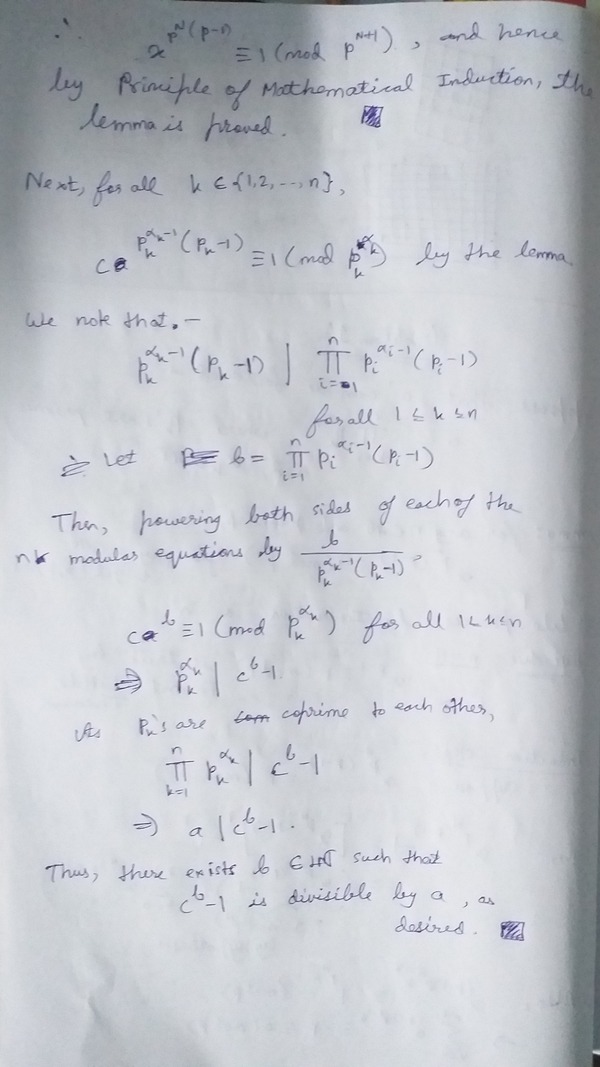 ∴ x^{p^N(p-1)} ≡ 1 (mod p^{N+1}), and hence
by Principle of Mathematical Induction, the
lemma is proved.
Next, for all k ∈ {1,2,--,n},
c^{p_k^{α_k-1}(p_k-1)} ≡ 1 (mod p_k^{α_k}) by the lemma
We note that. -
p_k^{α_k-1}(p_k-1) | ∏_{i=1}^{n} p_i^{α_i-1}(p_i-1)
for all 1 ≤ k ≤ n
Let b = ∏_{i=1}^{n} p_i^{α_i-1}(p_i-1)
Then, powering both sides of each of the
n modular equations by b/(p_k^{α_k-1}(p_k-1)),
c^b ≡ 1 (mod p_k^{α_k}) for all 1 ≤ k ≤ n
⇒ p_k^{α_k} | c^b-1.
As p_k's are coprime to each other,
∏_{k=1}^{n} p_k^{α_k} | c^b-1
⇒ a | c^b-1.
Thus, there exists b ∈ ℕ such that
c^b-1 is divisible by a, as
desired.